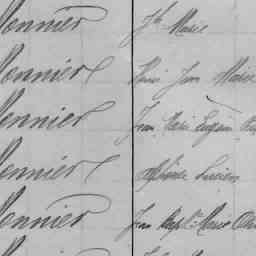 Monnier Jh Marie
Monnier Marie Jean Marie
Monnier Jean Marie Eugène
Monnier Alphonse Lucien
Monnier Jean Bapte Marie